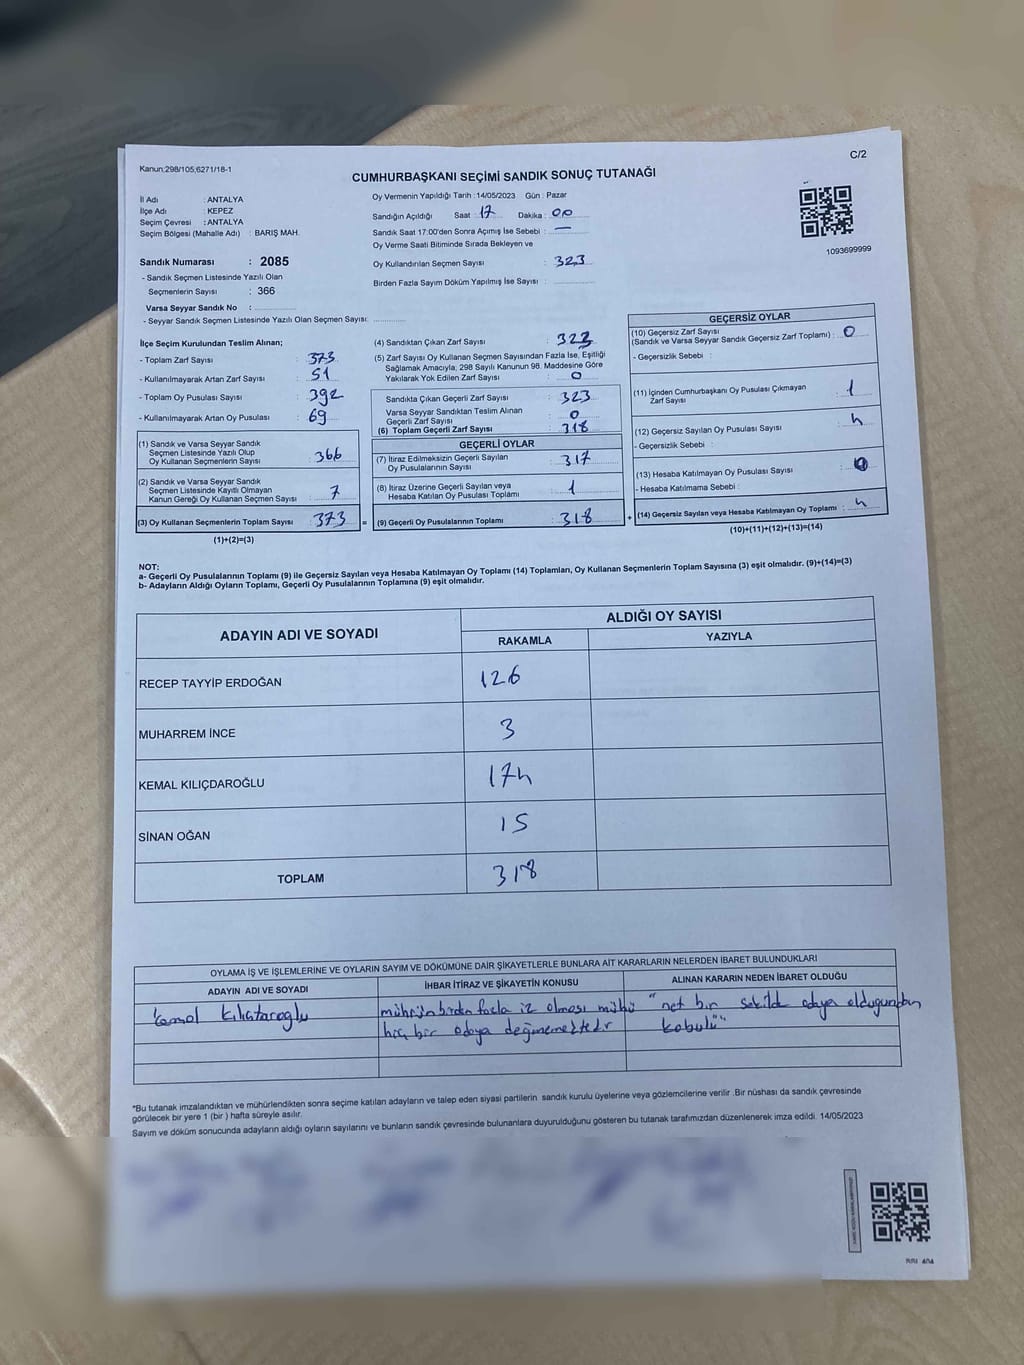 Kanun:298/105;6271/18-1
C/2
CUMHURBAŞKANI SEÇİMİ SANDIK SONUÇ TUTANAĞI
İl Adı : ANTALYA
İlçe Adı : KEPEZ
Seçim Çevresi : ANTALYA
Seçim Bölgesi (Mahalle Adı) : BARIŞ MAH.
Sandık Numarası : 2085
- Sandık Seçmen Listesinde Yazılı Olan
Seçmenlerin Sayısı : 366
Varsa Seyyar Sandık No :
- Seyyar Sandık Seçmen Listesinde Yazılı Olan Seçmen Sayısı:
Oy Vermenin Yapıldığı Tarih : 14/05/2023 Gün : Pazar
Sandığın Açıldığı Saat : 17 Dakika : 00
Sandık Saat 17:00'den Sonra Açımış İse Sebebi : —
Oy Verme Saati Bitiminde Sırada Bekleyen ve
Oy Kullandırılan Seçmen Sayısı : 323
Birden Fazla Sayım Döküm Yapılmış İse Sayısı :
1093699999
İlçe Seçim Kurulundan Teslim Alınan;
- Toplam Zarf Sayısı : 373
- Kullanılmayarak Artan Zarf Sayısı : 51
- Toplam Oy Pusulası Sayısı : 392
- Kullanılmayarak Artan Oy Pusulası : 69
(1) Sandık ve Varsa Seyyar Sandık
Seçmen Listesinde Yazılı Olup
Oy Kullanan Seçmenlerin Sayısı : 366
(2) Sandık ve Varsa Seyyar Sandık
Seçmen Listesinde Kayıtlı Olmayan
Kanun Gereği Oy Kullanan Seçmen Sayısı : 7
(3) Oy Kullanan Seçmenlerin Toplam Sayısı : 373 =
(1)+(2)=(3)
(4) Sandıktan Çıkan Zarf Sayısı : 323
(5) Zarf Sayısı Oy Kullanan Seçmen Sayısından Fazla İse, Eşitliği
Sağlamak Amacıyla; 298 Sayılı Kanunun 98. Maddesine Göre
Yakılarak Yok Edilen Zarf Sayısı : 0
Sandıkta Çıkan Geçerli Zarf Sayısı : 323
Varsa Seyyar Sandıktan Teslim Alınan
Geçerli Zarf Sayısı : 0
(6) Toplam Geçerli Zarf Sayısı : 318
GEÇERLİ OYLAR
(7) İtiraz Edilmeksizin Geçerli Sayılan
Oy Pusulalarının Sayısı : 317
(8) İtiraz Üzerine Geçerli Sayılan veya
Hesaba Katılan Oy Pusulası Toplamı : 1
(9) Geçerli Oy Pusulalarının Toplamı : 318 +
GEÇERSİZ OYLAR
(10) Geçersiz Zarf Sayısı
(Sandık ve Varsa Seyyar Sandık Geçersiz Zarf Toplamı) : 0
- Geçersizlik Sebebi :
(11) İçinden Cumhurbaşkanı Oy Pusulası Çıkmayan
Zarf Sayısı : 1
(12) Geçersiz Sayılan Oy Pusulası Sayısı : 4
- Geçersizlik Sebebi :
(13) Hesaba Katılmayan Oy Pusulası Sayısı : 0
- Hesaba Katılmama Sebebi :
(14) Geçersiz Sayılan veya Hesaba Katılmayan Oy Toplamı : 4
(10)+(11)+(12)+(13)=(14)
NOT:
a- Geçerli Oy Pusulalarının Toplamı (9) ile Geçersiz Sayılan veya Hesaba Katılmayan Oy Toplamı (14) Toplamları, Oy Kullanan Seçmenlerin Toplam Sayısına (3) eşit olmalıdır. (9)+(14)=(3)
b- Adayların Aldığı Oyların Toplamı, Geçerli Oy Pusulalarının Toplamına (9) eşit olmalıdır.
ADAYIN ADI VE SOYADI
ALDIĞI OY SAYISI
RAKAMLA YAZIYLA
RECEP TAYYİP ERDOĞAN 126
MUHARREM İNCE 3
KEMAL KILIÇDAROĞLU 174
SİNAN OĞAN 15
TOPLAM 318
OYLAMA İŞ VE İŞLEMLERİNE VE OYLARIN SAYIM VE DÖKÜMÜNE DAİR ŞİKAYETLERLE BUNLARA AİT KARARLARIN NELERDEN İBARET BULUNDUKLARI
ADAYIN ADI VE SOYADI İHBAR İTİRAZ VE ŞİKAYETİN KONUSU ALINAN KARARIN NEDEN İBARET OLDUĞU
mühürün birden fazla iz olması "net bir şekilde adaya olduğundan
hiç bir adaya değmemektedir kabulü"
*Bu tutanak imzalandıktan ve mühürlendikten sonra seçime katılan adayların ve talep eden siyasi partilerin sandık kurulu üyelerine veya gözlemcilerine verilir .Bir nüshası da sandık çevresinde
görülecek bir yere 1 (bir ) hafta süreyle asılır.
Sayım ve döküm sonucunda adayların aldığı oyların sayılarını ve bunların sandık çevresinde bulunanlara duyurulduğunu gösteren bu tutanak tarafımızdan düzenlenerek imza edildi. 14/05/2023